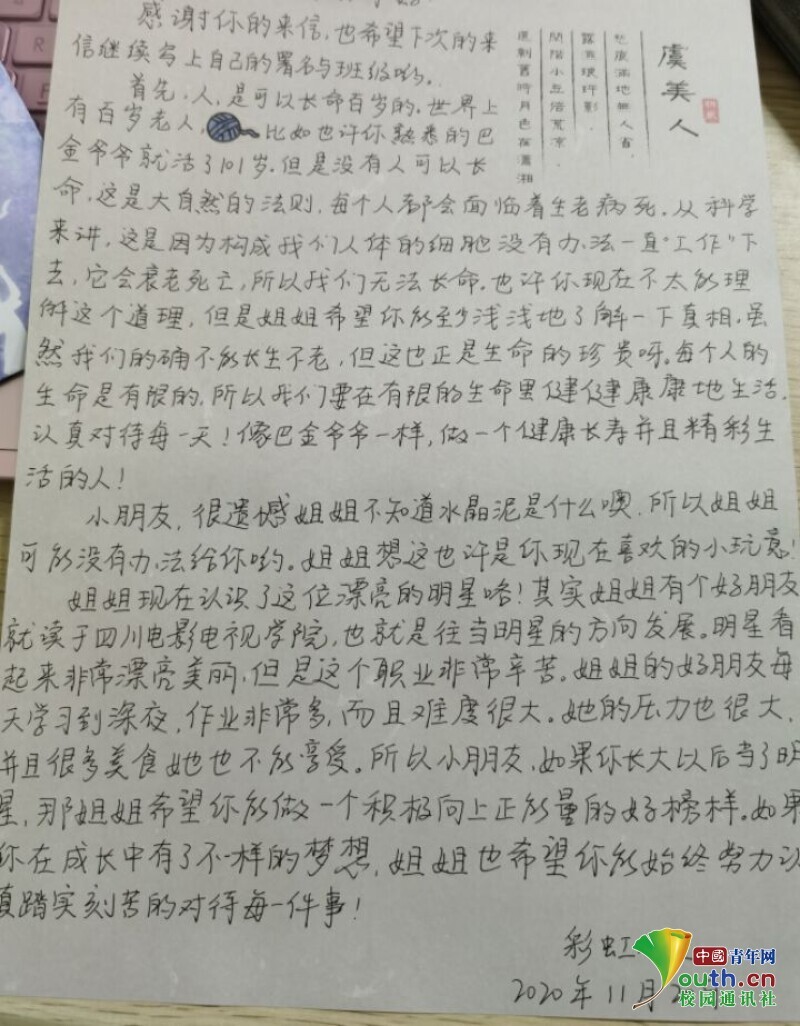 感谢你的来信，也希望下次的来
信继续写上自己的署名与班级哟。
首先，人，是可以长命百岁的，世界上
有百岁老人，比如也许你熟悉的巴
金爷爷就活了101岁。但是没有人可以长
命，这是大自然的法则，每个人都会面临着生老病死。从科学
来讲，这是因为构成我们人体的细胞没有办法一直“工作”下
去，它会衰老死亡，所以我们无法长命。也许你现在不太能理
解这个道理，但是姐姐希望你能至少浅浅地了解一下真相，虽
然我们的确不能长生不老，但这也正是生命的珍贵呀。每个人的
生命是有限的，所以我们要在有限的生命里健健康康地生活，
认真对待每一天！像巴金爷爷一样，做一个健康长寿并且精彩生
活的人！
小朋友，很遗憾姐姐不知道水晶泥是什么噢，所以姐姐
可能没有办法给你哟。姐姐想这也许是你现在喜欢的小玩意！
姐姐现在认识了这位漂亮的明星咯！其实姐姐有个好朋友
就读于四川电影电视学院，也就是往当明星的方向发展。明星看
起来非常漂亮美丽，但是这个职业非常辛苦。姐姐的好朋友每
天学习到深夜，作业非常多，而且难度很大。她的压力也很大，
并且很多美食她也不能享受。所以小朋友，如果你长大以后当了明
星，那姐姐希望你能做一个积极向上正能量的好榜样。如果
你在成长中有了不一样的梦想，姐姐也希望你能始终努力认
真踏实刻苦的对待每一件事！
彩虹
2020年11月2
虞美人
愁痕滿地無人省
露濕琅玕影
閒階小立倍荒涼
還剩舊時月色在瀟湘
中國青年网
Youth.cn
校园通讯社